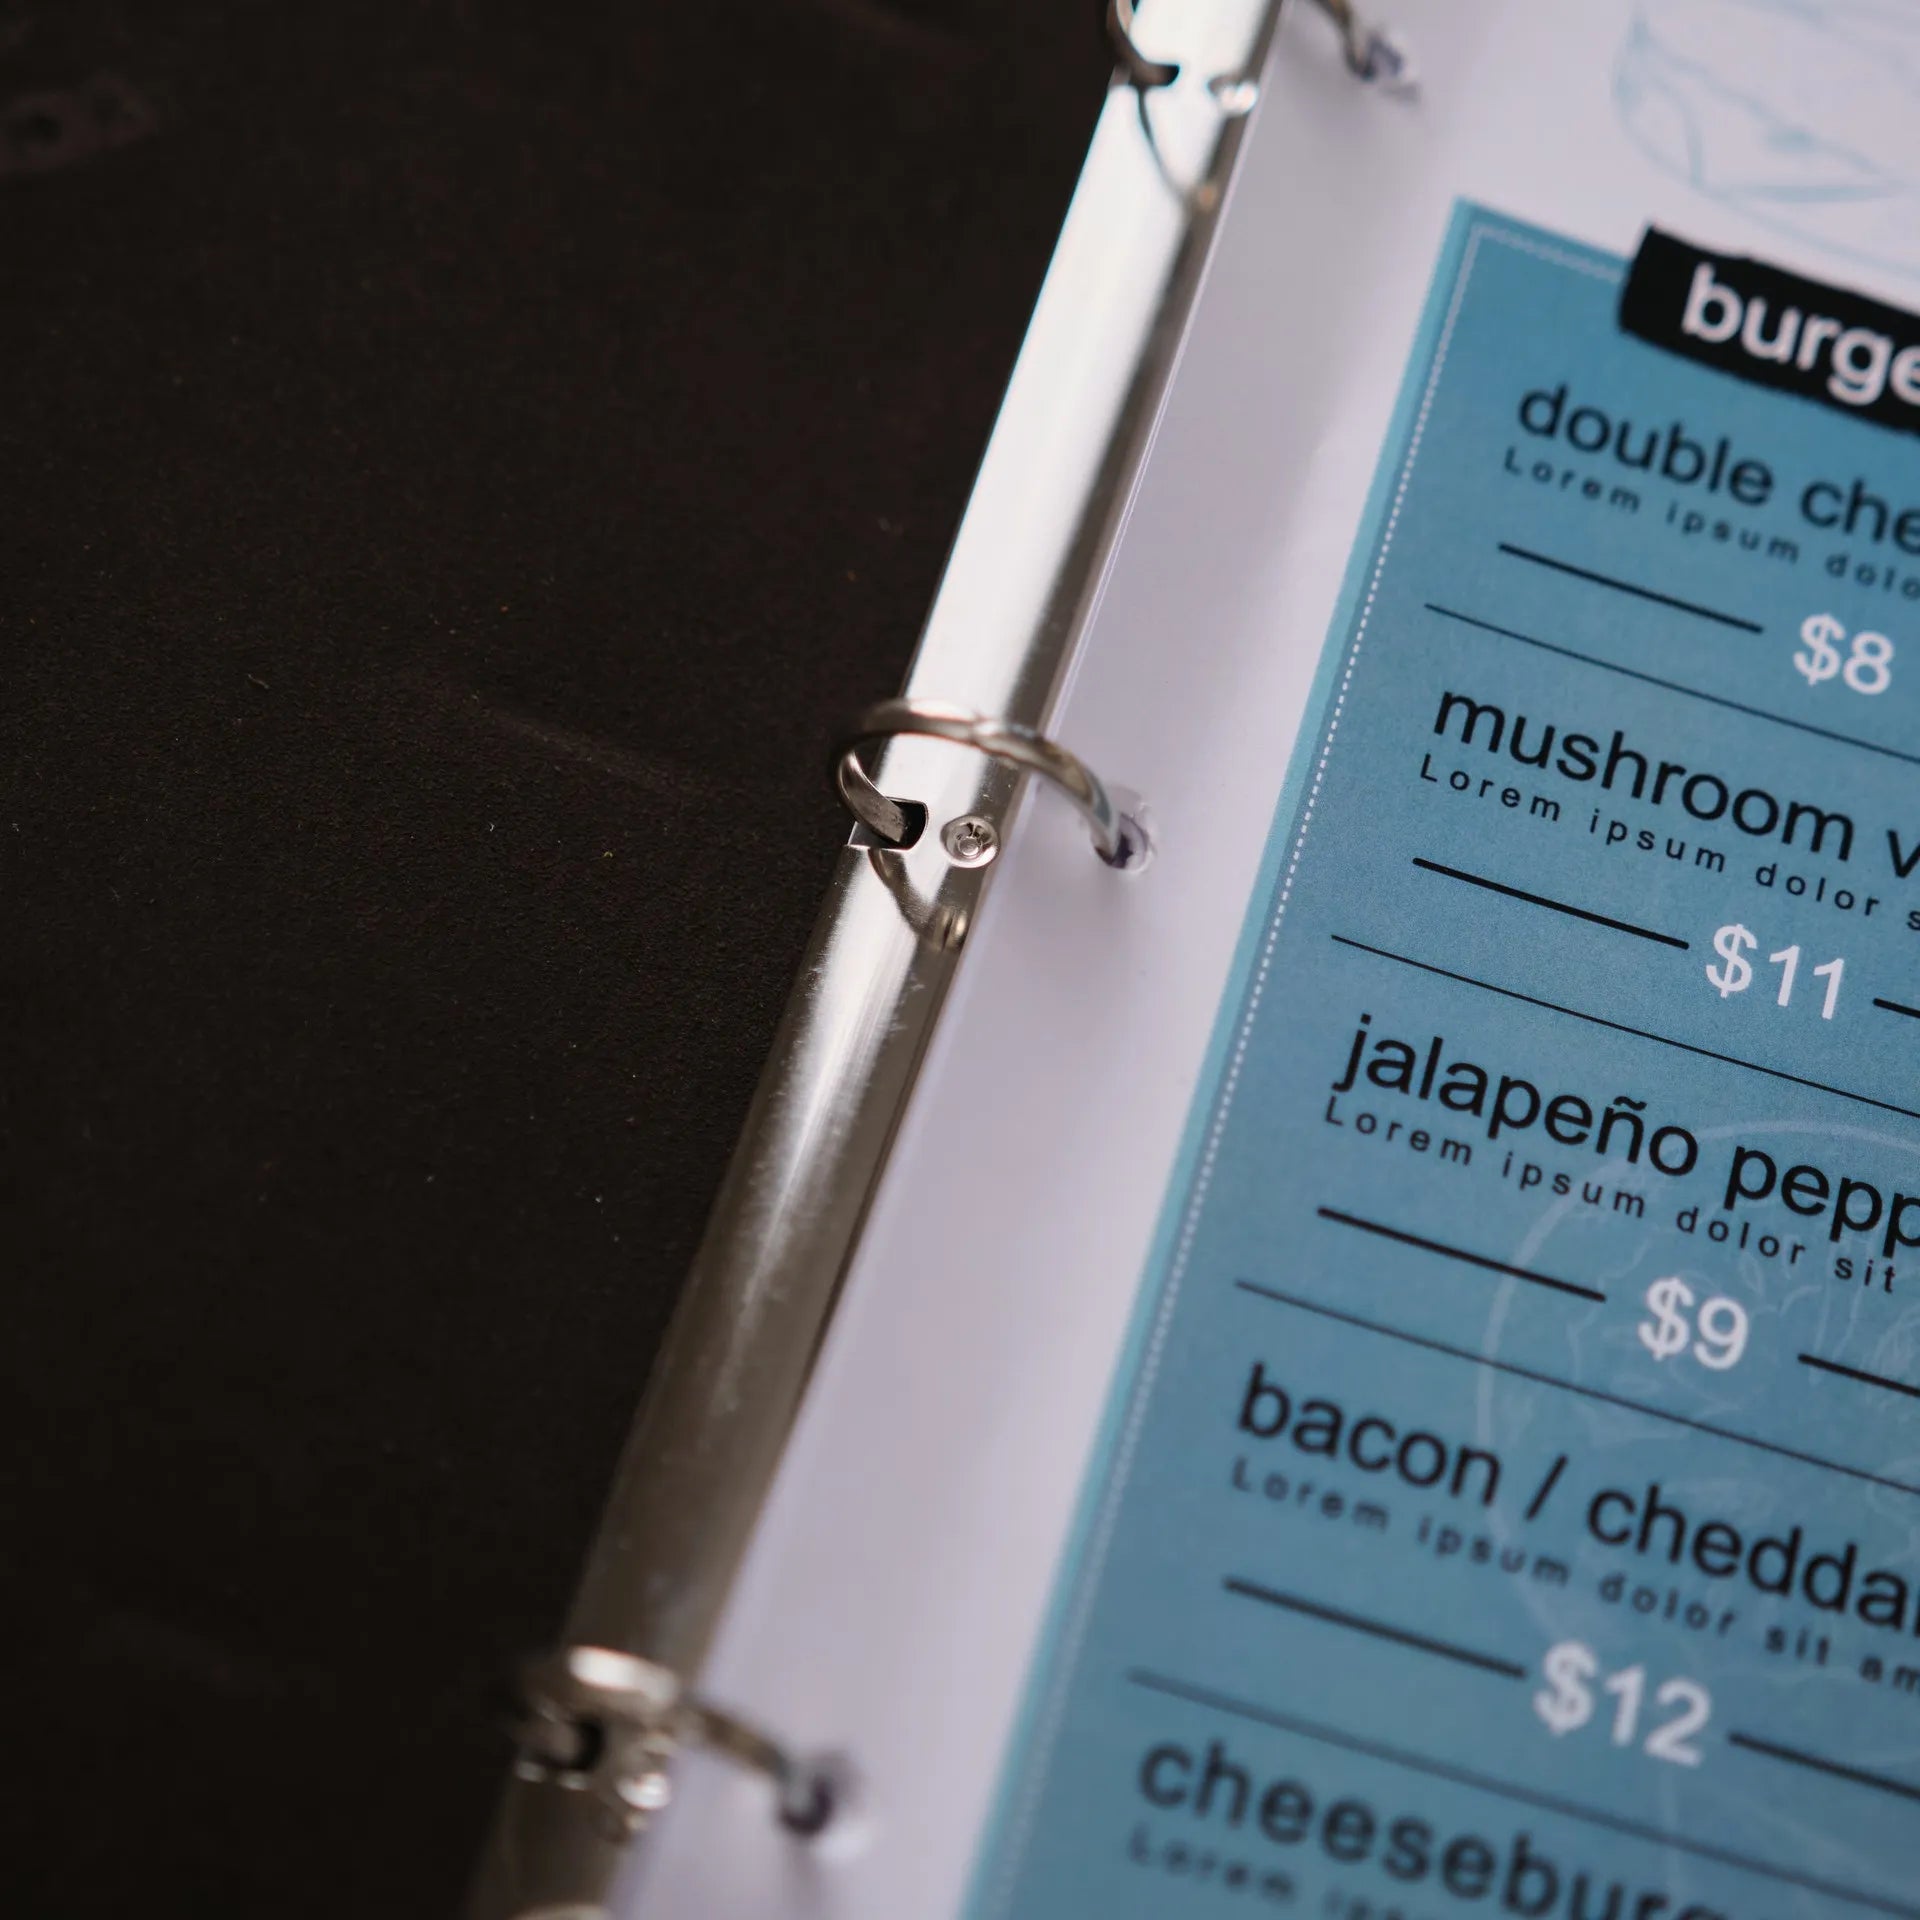 burge
double che
Lorem ipsum dolo
$8
mushroom v
Lorem ipsum dolor s
$11
jalapeño pepp
Lorem ipsum dolor sit
$9
bacon / cheddar
Lorem ipsum dolor sit am
$12
cheeseburg
Lorem ips